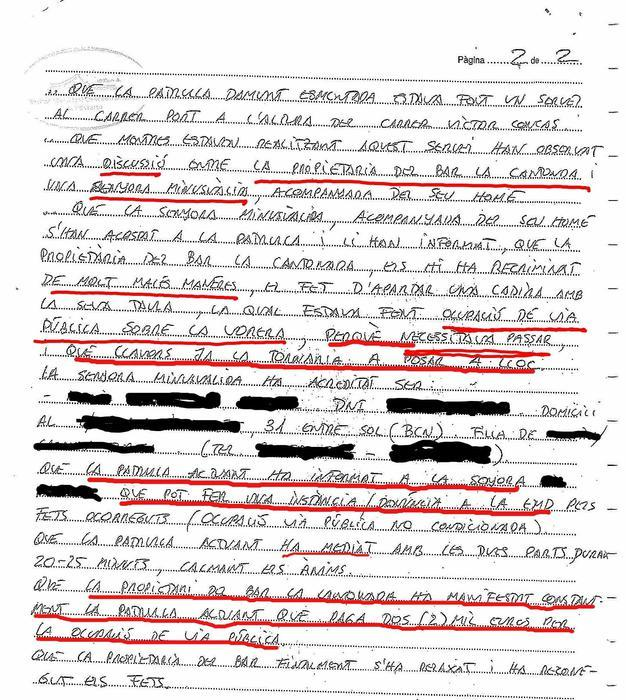 Pàgina 2 de 2
.. QUE LA PATRULLA DAMUNT ESMENTADA ESTAVA FENT UN SERVEI
AL CARRER PORT A L'ALÇADA DEL CARRER VICTOR CONCAS.
.. QUE MENTRES ESTAVEN REALITZANT AQUEST SERVEI HAN OBSERVAT
UNA DISCUSSIÓ ENTRE LA PROPIETARIA DEL BAR LA CANTONADA I
UNA SENYORA MINUSVÀLIDA, ACOMPANYADA DEL SEU HOME
.. QUE LA SENYORA MINUSVÀLIDA, ACOMPANYADA DEL SEU HOME
S'HAN ACOSTAT A LA PATRULLA I LI HAN INFORMAT, QUE LA
PROPIETÀRIA DEL BAR LA CANTONADA, ELS HI HA RECRIMINAT
DE MOLT MALES MANERES, EL FET D'APARTAR UNA CADIRA AMB
LA SEVA TAULA, LA QUAL ESTAVA FENT OCUPACIÓ DE VIA
PÚBLICA SOBRE LA VORERA, PERQUÈ NECESSITAVA PASSAR,
I QUE LLAVORS JA LA TORNARIA A POSAR A LLOC.
LA SENYORA MINUSVALIDA HA ACREDITAT SER:
- DNI . DOMICILI
AL , 31 ENTRE SOL (BCN) FILLA DE /
(TEL. - )
QUE LA PATRULLA ACTUANT HA INFORMAT A LA SENYORA
QUE POT FER UNA INSTÀNCIA/DENÚNCIA A LA EMD PELS
FETS OCORREGUTS (OCUPACIÓ VIA PÚBLICA NO CONDICIONADA)
QUE LA PATRULLA ACTUANT HA MEDIAT AMB LES DUES PARTS, DURANT
20-25 MINUTS, CALMANT ELS ÀNIMS.
QUE LA PROPIETARI DEL BAR LA CANTONADA HA MANIFESTAT CONSTANT-
MENT LA PATRULLA ACTUANT QUE PAGA DOS (2) MIL EUROS PER
LA OCUPACIÓ DE VIA PÚBLICA.
QUE LA PROPIETARIA DEL BAR FINALMENT S'HA RELAXAT I HA RECONE-
GUT ELS FETS.